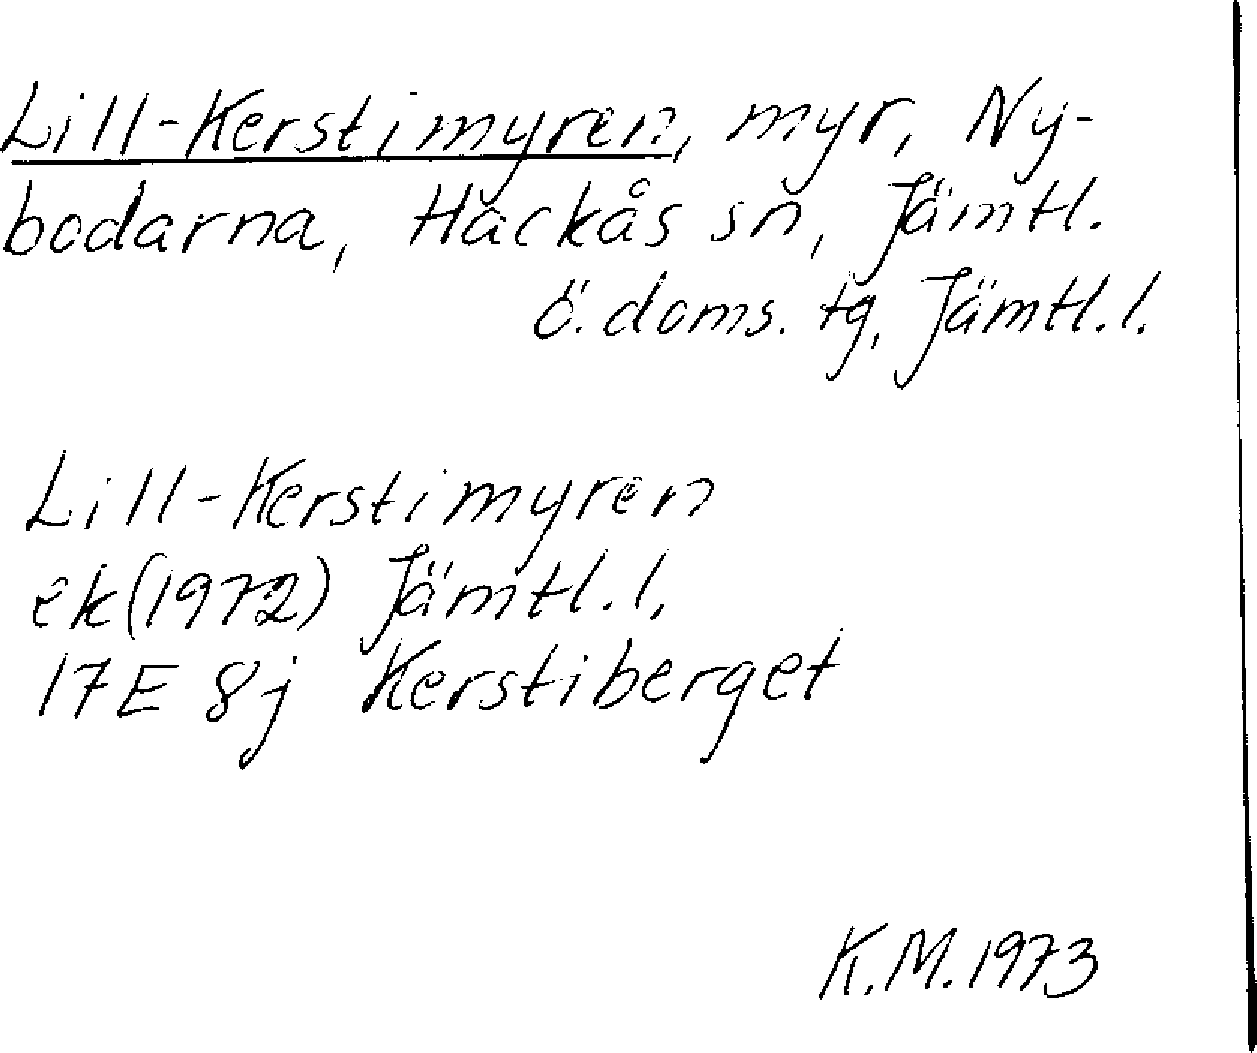 Lill-Kerstimyren, myr, Ny-
bodarna, Hackås sn, Jämtl.
ö. doms. tg, Jämtl. l.
Lill-Kerstimyren
ek (1972) Jämtl. l.
17E 8j Kerstiberget
K.M. 1973